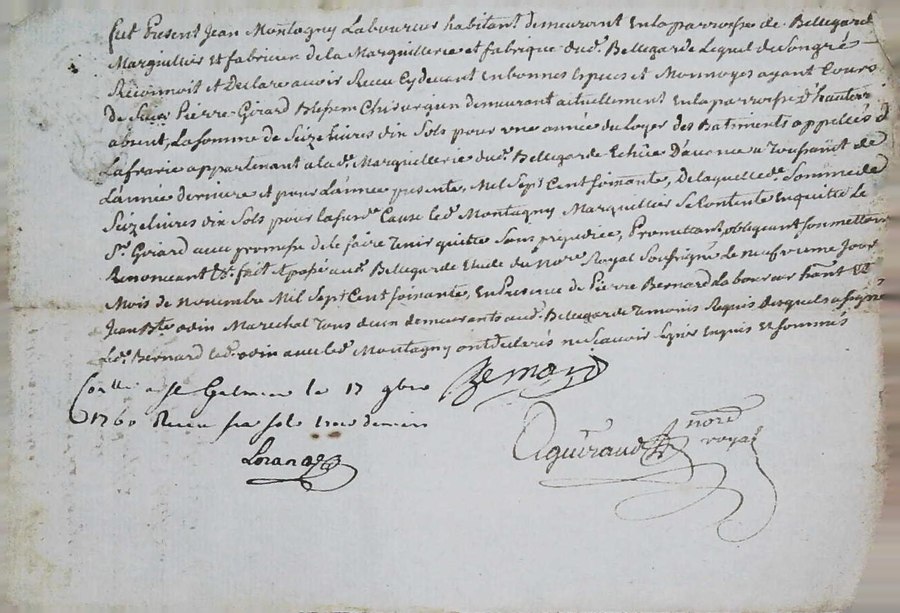 fut Present Jean Montagny Laboureur habitant demeurant En la parroisse de Bellegarde
Marguillier Et fabricien de la Marguillerie et fabrique dud. Bellegarde Lequel de Son gré
Reconnoit et Declare avoir Receu Cy devant En bonnes Espèces et Monnoyes ayant Cours
de Sieur Pierre Girard Chirurgien demeurant actuellement En la parroisse d'
absent, La Somme de Seize livres dix Sols pour une année du loyer des Batiments appellés
La frarie appartenant a la de. Marguillerie dud. Bellegarde Echûe D'avance a Toussaint de
L'année derniere et pour L'année presente, Mil Sept Cent soixante, De laquelle de. Somme de
Seize livres dix Sols pour la susde. Cause led. Montagny Marguillier Se Contente En quitte le
Sr. Girard avec promesse de le faire Tenir quitte Sans prejudice, Promettant, obligeant, Soumettant
Renonceant &a. fait & passé aud. Bellegarde Etude du Nore. Royal Soussigné Le neufvieme Jour
Mois de novembre Mil Sept Cent soixante, En Presence de Pierre Bernard Laboureur & de
Jean Bte. odin Marechal Tous deux demeurants aud. Bellegarde Temoins Requis Desquels a signé
Led. Bernard led. odin avec led. Montagny ont declarés ne Scavoir Signer Enquis Et Sommés
Con lle a St Galmier le 17 9bre
1760 Receu six sols deniers
Bernard
Aguiraud nore
royal